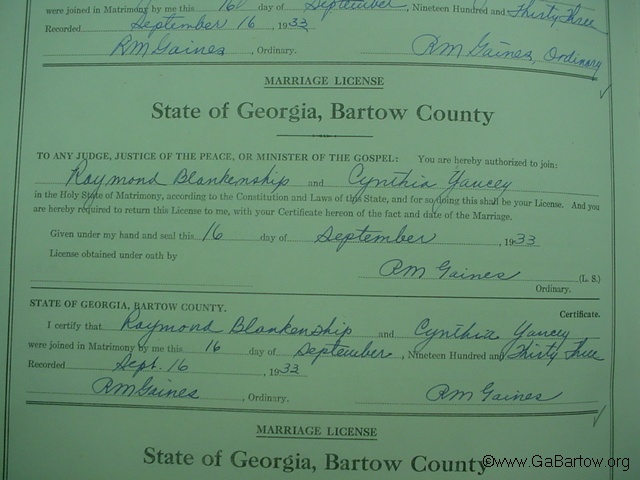 were joined in Matrimony by me this 16 day of September, Nineteen Hundred and Thirty Three
Recorded September 16, 1933
RM Gaines, Ordinary. RM Gaines, Ordinary
MARRIAGE LICENSE
State of Georgia, Bartow County
TO ANY JUDGE, JUSTICE OF THE PEACE, OR MINISTER OF THE GOSPEL: You are hereby authorized to join:
Raymond Blankenship and Cynthia Yancey
in the Holy State of Matrimony, according to the Constitution and Laws of this State, and for so doing this shall be your License. And you
are hereby required to return this License to me, with your Certificate hereon of the fact and date of the Marriage.
Given under my hand and seal this 16 day of September, 1933
License obtained under oath by
RM Gaines (L. S.)
Ordinary.
STATE OF GEORGIA, BARTOW COUNTY. Certificate.
I certify that Raymond Blankenship and Cynthia Yancey
were joined in Matrimony by me this 16 day of September, Nineteen Hundred and Thirty Three
Recorded Sept. 16, 1933
RM Gaines, Ordinary. RM Gaines
MARRIAGE LICENSE
State of Georgia, Bartow County
©www.GaBartow.org